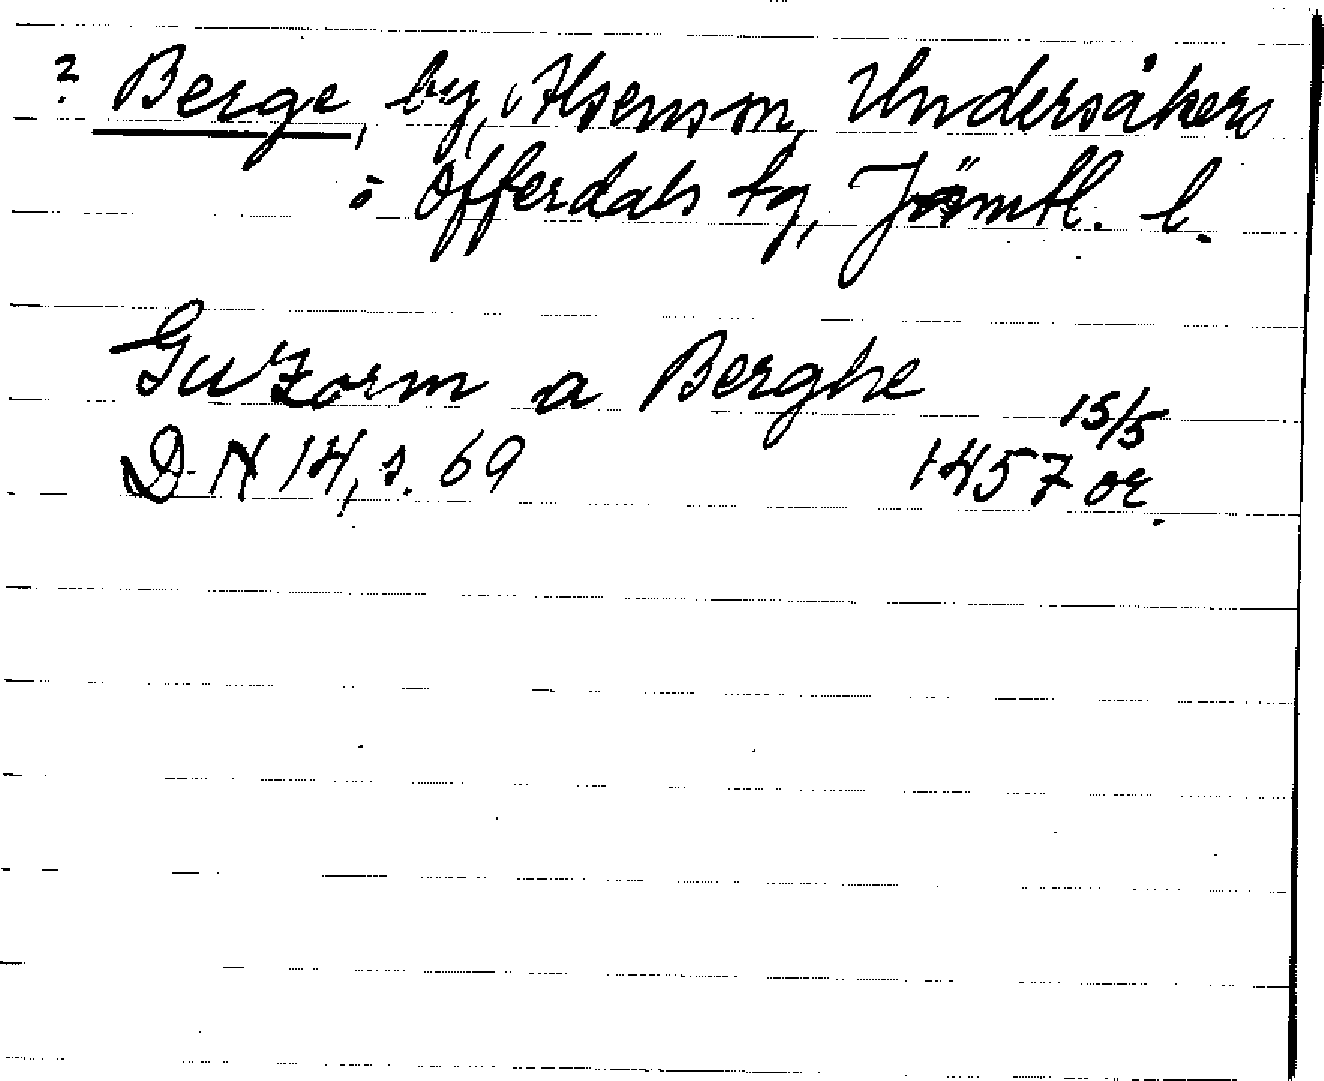 ? Berge, by, Alsens sn, Undersåkers
o Offerdals tg, Jämtl. l.
Guttorm a Berghe
15/5
D N 14, s. 69 1457 or.